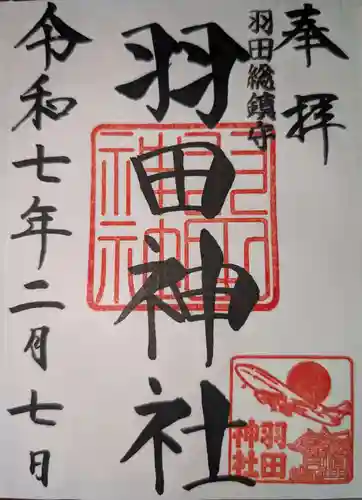 奉拝
羽田総鎮守
羽田神社
令和七年二月七日
羽田
神社